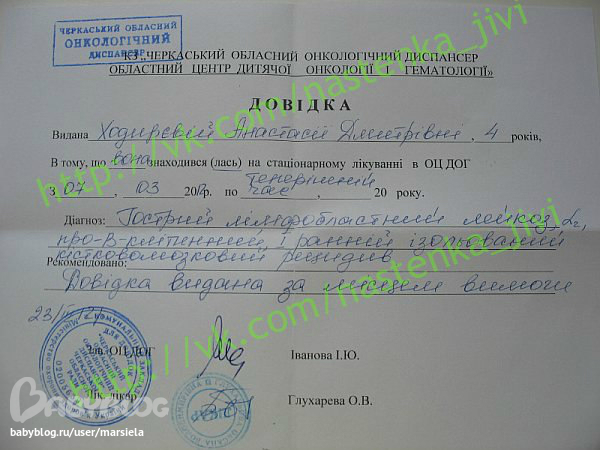 ЧЕРКАСЬКИЙ ОБЛАСНИЙ
ОНКОЛОГІЧНИЙ
ДИСПАНСЕР
КЗ „ЧЕРКАСЬКИЙ ОБЛАСНИЙ ОНКОЛОГІЧНИЙ ДИСПАНСЕР
ОБЛАСТНИЙ ЦЕНТР ДИТЯЧОЇ ОНКОЛОГІЇ ГЕМАТОЛОГІЇ»
ДОВІДКА
Видана Анастасії Дмитрівні, 4 років,
В тому, що вона знаходився (лась) на стаціонарному лікуванні в ОЦ ДОГ
З 07, 03 20 р. по теперішній
час, 20 року.
Діагноз: Гострий лімфобластний лейкоз,
про-В-клітинний, І ранній ізольований
кістковомозковий рецидив
Рекомендовано:
Довідка видана за місцем вимоги
Зав ОЦ ДОГ
Іванова І.Ю.
Лік. лікер
Глухарева О.В.
http://vk.com/nastenka_jivi
http://vk.com/nastenka_jivi
BABYBLOG
babyblog.ru/user/marsiela